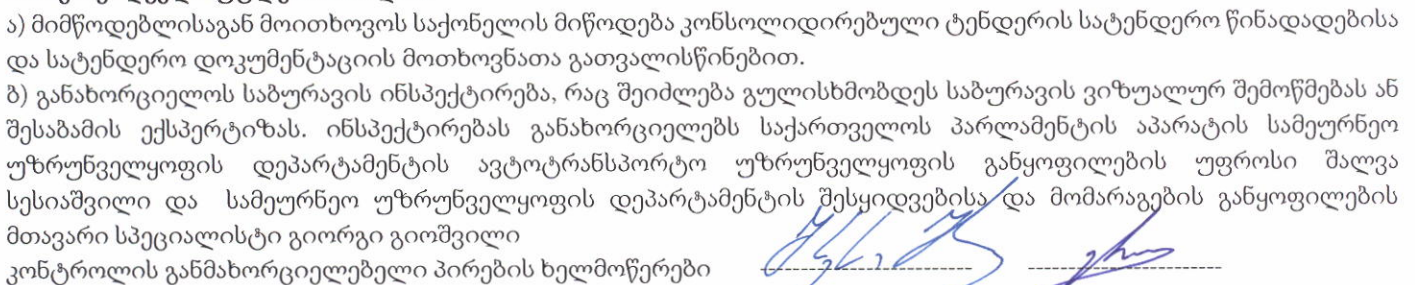 ა) მიმწოდებლისაგან მოითხოვოს საქონელის მიწოდება კონსოლიდირებული ტენდერის სატენდერო წინადადებისა
და სატენდერო დოკუმენტაციის მოთხოვნათა გათვალისწინებით.
ბ) განახორციელოს საბურავის ინსპექტირება, რაც შეიძლება გულისხმობდეს საბურავის ვიზუალურ შემოწმებას ან
შესაბამის ექსპერტიზას. ინსპექტირებას განახორციელებს საქართველოს პარლამენტის აპარატის სამეურნეო
უზრუნველყოფის დეპარტამენტის ავტოტრანსპორტო უზრუნველყოფის განყოფილების უფროსი შალვა
სესიაშვილი და სამეურნეო უზრუნველყოფის დეპარტამენტის შესყიდვებისა და მომარაგების განყოფილების
მთავარი სპეციალისტი გიორგი გიოშვილი
კონტროლის განმახორციელებელი პირების ხელმოწერები